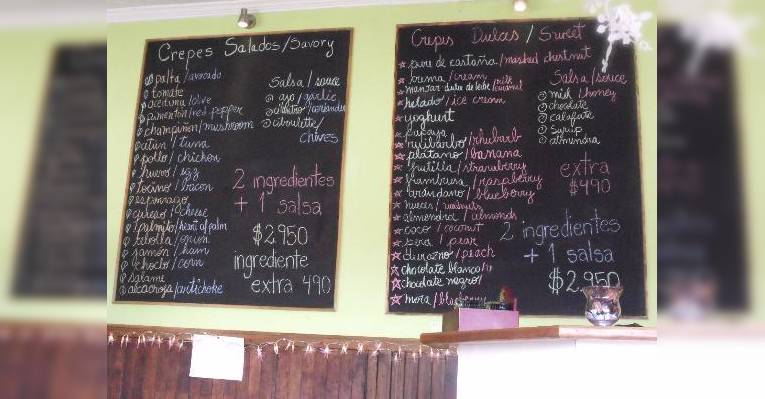 Crepes Salados/Savory
palta/avocado
tomate
aceituna/olive
pimenton/red pepper
champiñon/mushroom
atun/tuna
pollo/chicken
huevo/egg
tocino/bacon
esparrago
queso/cheese
palmito/heart of palm
cebolla/onion
jamón/ham
choclo/corn
salame
alcachofa/antichoke
Salsa/sauce
ajo/garlic
cilantro/coriander
ciboulette/
chives
2 ingredientes
+ 1 salsa
$2950
ingrediente
extra 490
Crepes Dulces/Sweet
pure de castaña/mashed chestnut
crema/cream
manjar dulce de leche/milk caramel
helado/ice cream
yoghurt
papaya
ruibarbo/rhubarb
platano/banana
frutilla/strawberry
frambuesa/raspberry
arandano/blueberry
nueces/walnuts
almendra/almonds
coco/coconut
pera/pear
durazno/peach
chocolate blanco/
chocolate negro/
mora/
Salsa/sauce
miel/honey
chocolate
calafate
syrup
almendra
extra
$490
2 ingredientes
+ 1 salsa
$2.950